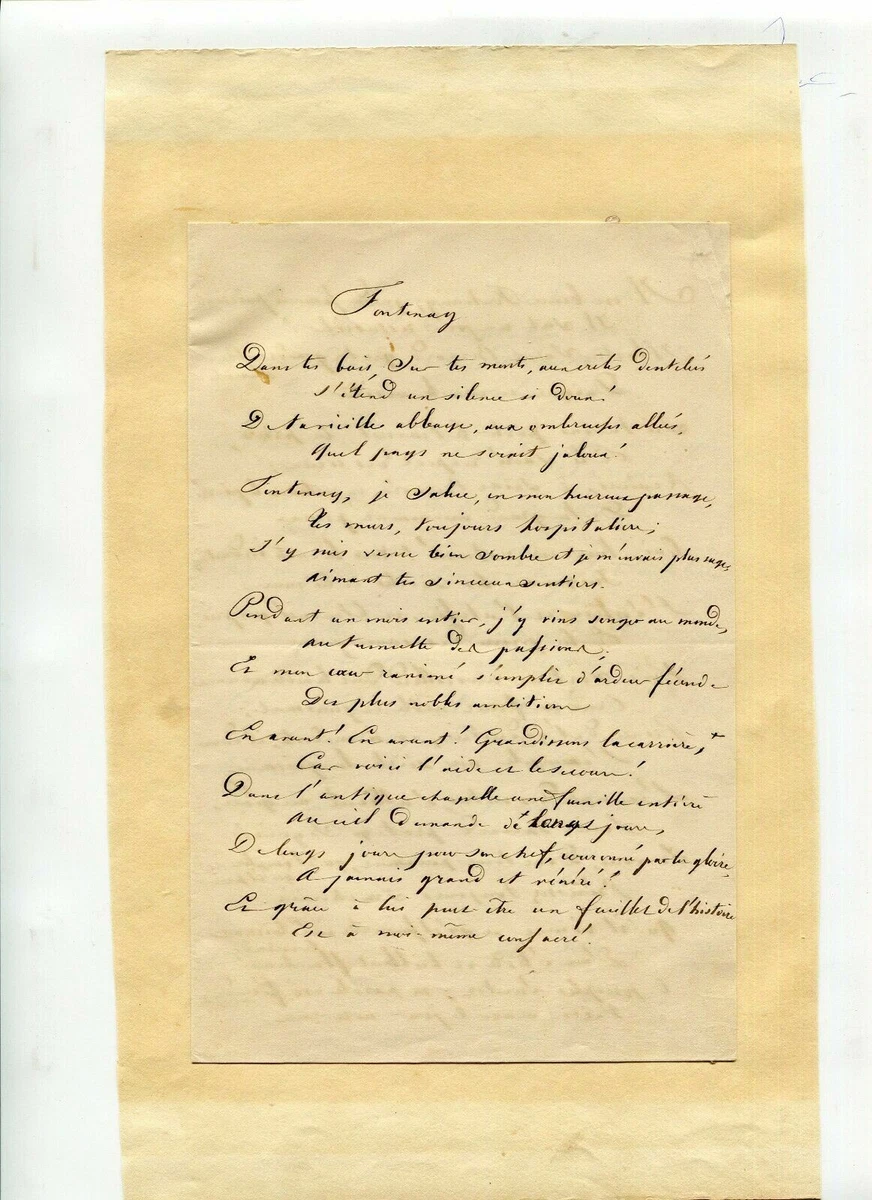 Fontenay
Dans tes bois, sur tes monts, aux crêtes dentelés
S'étend un silence si doux!
De ta vieille abbaye, aux ombreuses allées,
Quel pays ne serait jaloux!
Fontenay, je salue, en mon heureux passage,
tes murs, toujours hospitaliers;
J'y suis venue bien sombre et je m'en vais plus sage,
aimant tes sinueux sentiers.
Pendant un mois entier, j'y vins songer au monde,
au tumulte des passions;
Et mon cœur ranimé s'emplit d'ardeur féconde
Des plus nobles ambitions
En avant! En avant! Grandissons la carrière,
Car voici l'aide et le secours!
Dans l'antique chapelle une famille entière
au ciel demande de longs jours,
De longs jours pour son chef, couronné par la gloire,
A jamais grand et vénéré!
Et grâce à lui peut-être un feuillet de l'histoire
Est à moi-même consacré!